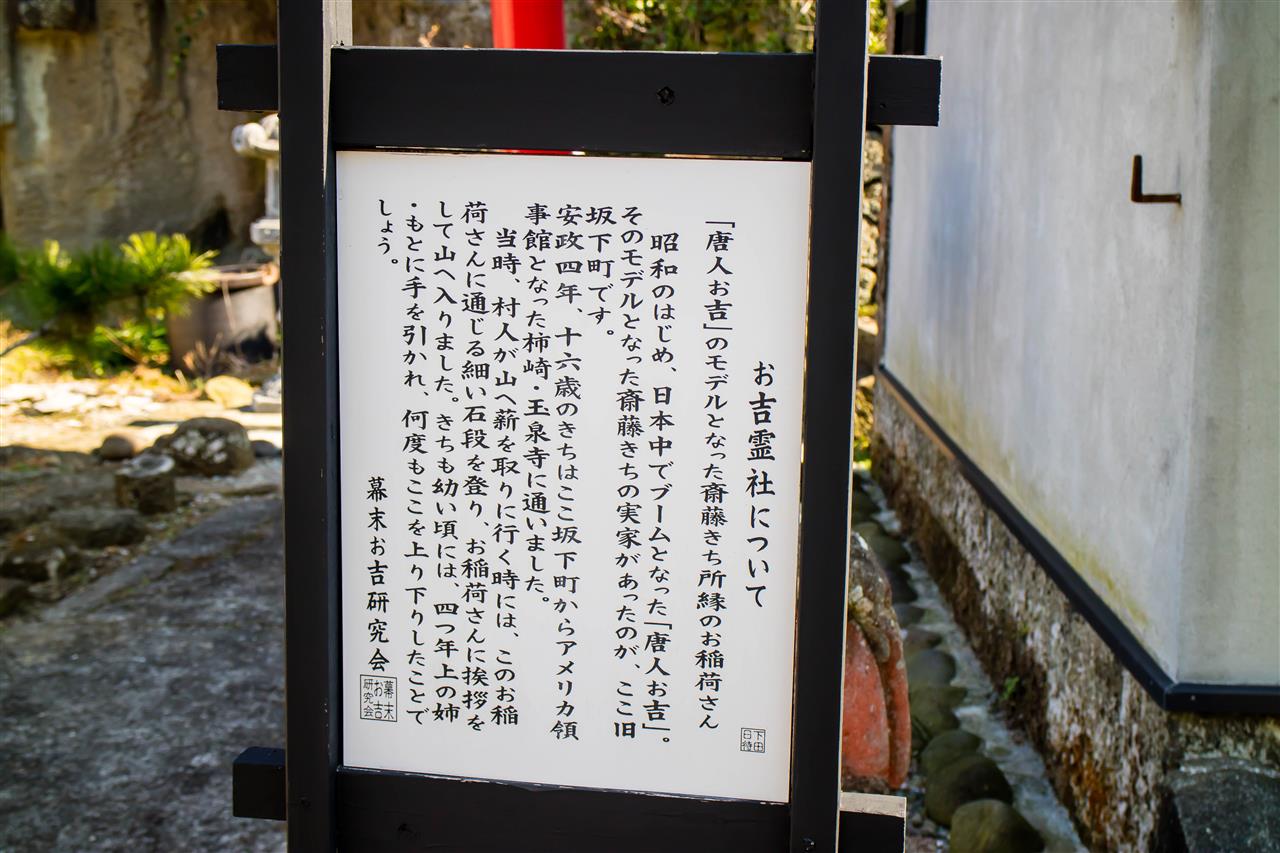 お吉霊社について
「唐人お吉」のモデルとなった斎藤きち所縁のお稲荷さん
昭和のはじめ、日本中でブームとなった「唐人お吉」。
そのモデルとなった斎藤きちの実家があったのが、ここ旧
坂下町です。
安政四年、十六歳のきちはここ坂下町からアメリカ領
事館となった柿崎・玉泉寺に通いました。
当時、村人が山へ薪を取りに行く時には、このお稲
荷さんに通じる細い石段を登り、お稲荷さんに挨拶を
して山へ入りました。きちも幼い頃には、四つ年上の姉
・もとに手を引かれ、何度もここを上り下りしたことで
しょう。
幕末お吉研究会
幕末
お吉
研究会
下田
日待